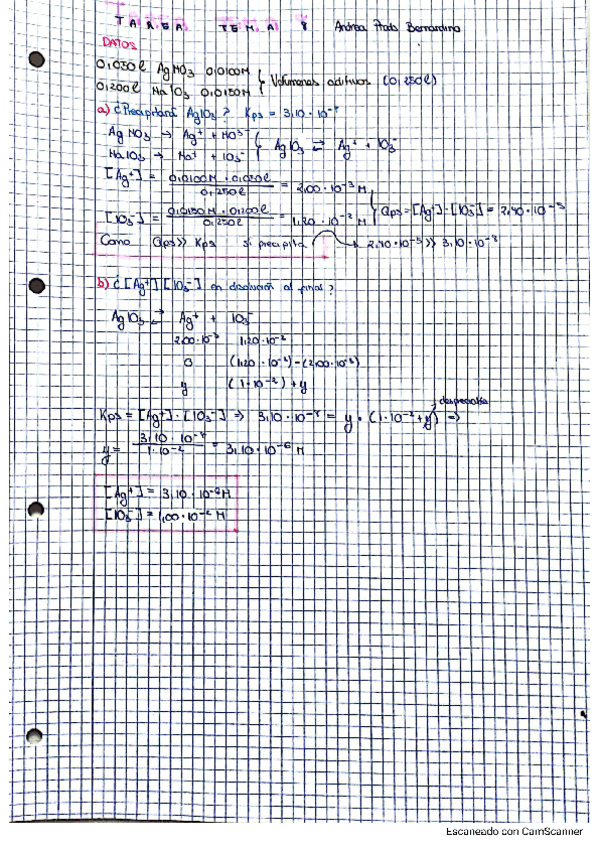 TAREA TEMA 8 Andrea Prats Bernardino
DATOS
0,050ℓ AgNO3 0,0100M
0,200ℓ NaIO3 0,0150M
Volúmenes aditivos (0,250ℓ)
a) ¿Precipitará AgIO3? Kps = 3,10·10⁻⁸
AgNO3 → Ag⁺ + NO3⁻
NaIO3 → Na⁺ + IO3⁻
AgIO3 ⇄ Ag⁺ + IO3⁻
[Ag⁺] = 0,0100M · 0,050ℓ / 0,250ℓ = 2,00·10⁻³ M
[IO3⁻] = 0,0150M · 0,200ℓ / 0,250ℓ = 1,20·10⁻² M
Qps = [Ag⁺]·[IO3⁻] = 2,40·10⁻⁵
Como Qps >> Kps si precipita → 2,40·10⁻⁵ >> 3,10·10⁻⁸
b) ¿[Ag⁺][IO3⁻] en disolución al final?
AgIO3 ⇄ Ag⁺ + IO3⁻
2,00·10⁻³ 1,20·10⁻²
0 (1,20·10⁻²)-(2,00·10⁻³)
y (1·10⁻²)+y
despreciable
Kps = [Ag⁺]·[IO3⁻] ⇒ 3,10·10⁻⁸ = y · (1·10⁻²+y) ⇒
y = 3,10·10⁻⁸ / 1·10⁻² = 3,10·10⁻⁶ M
[Ag⁺] = 3,10·10⁻⁶ M
[IO3⁻] = 1,00·10⁻² M
Escaneado con CamScanner